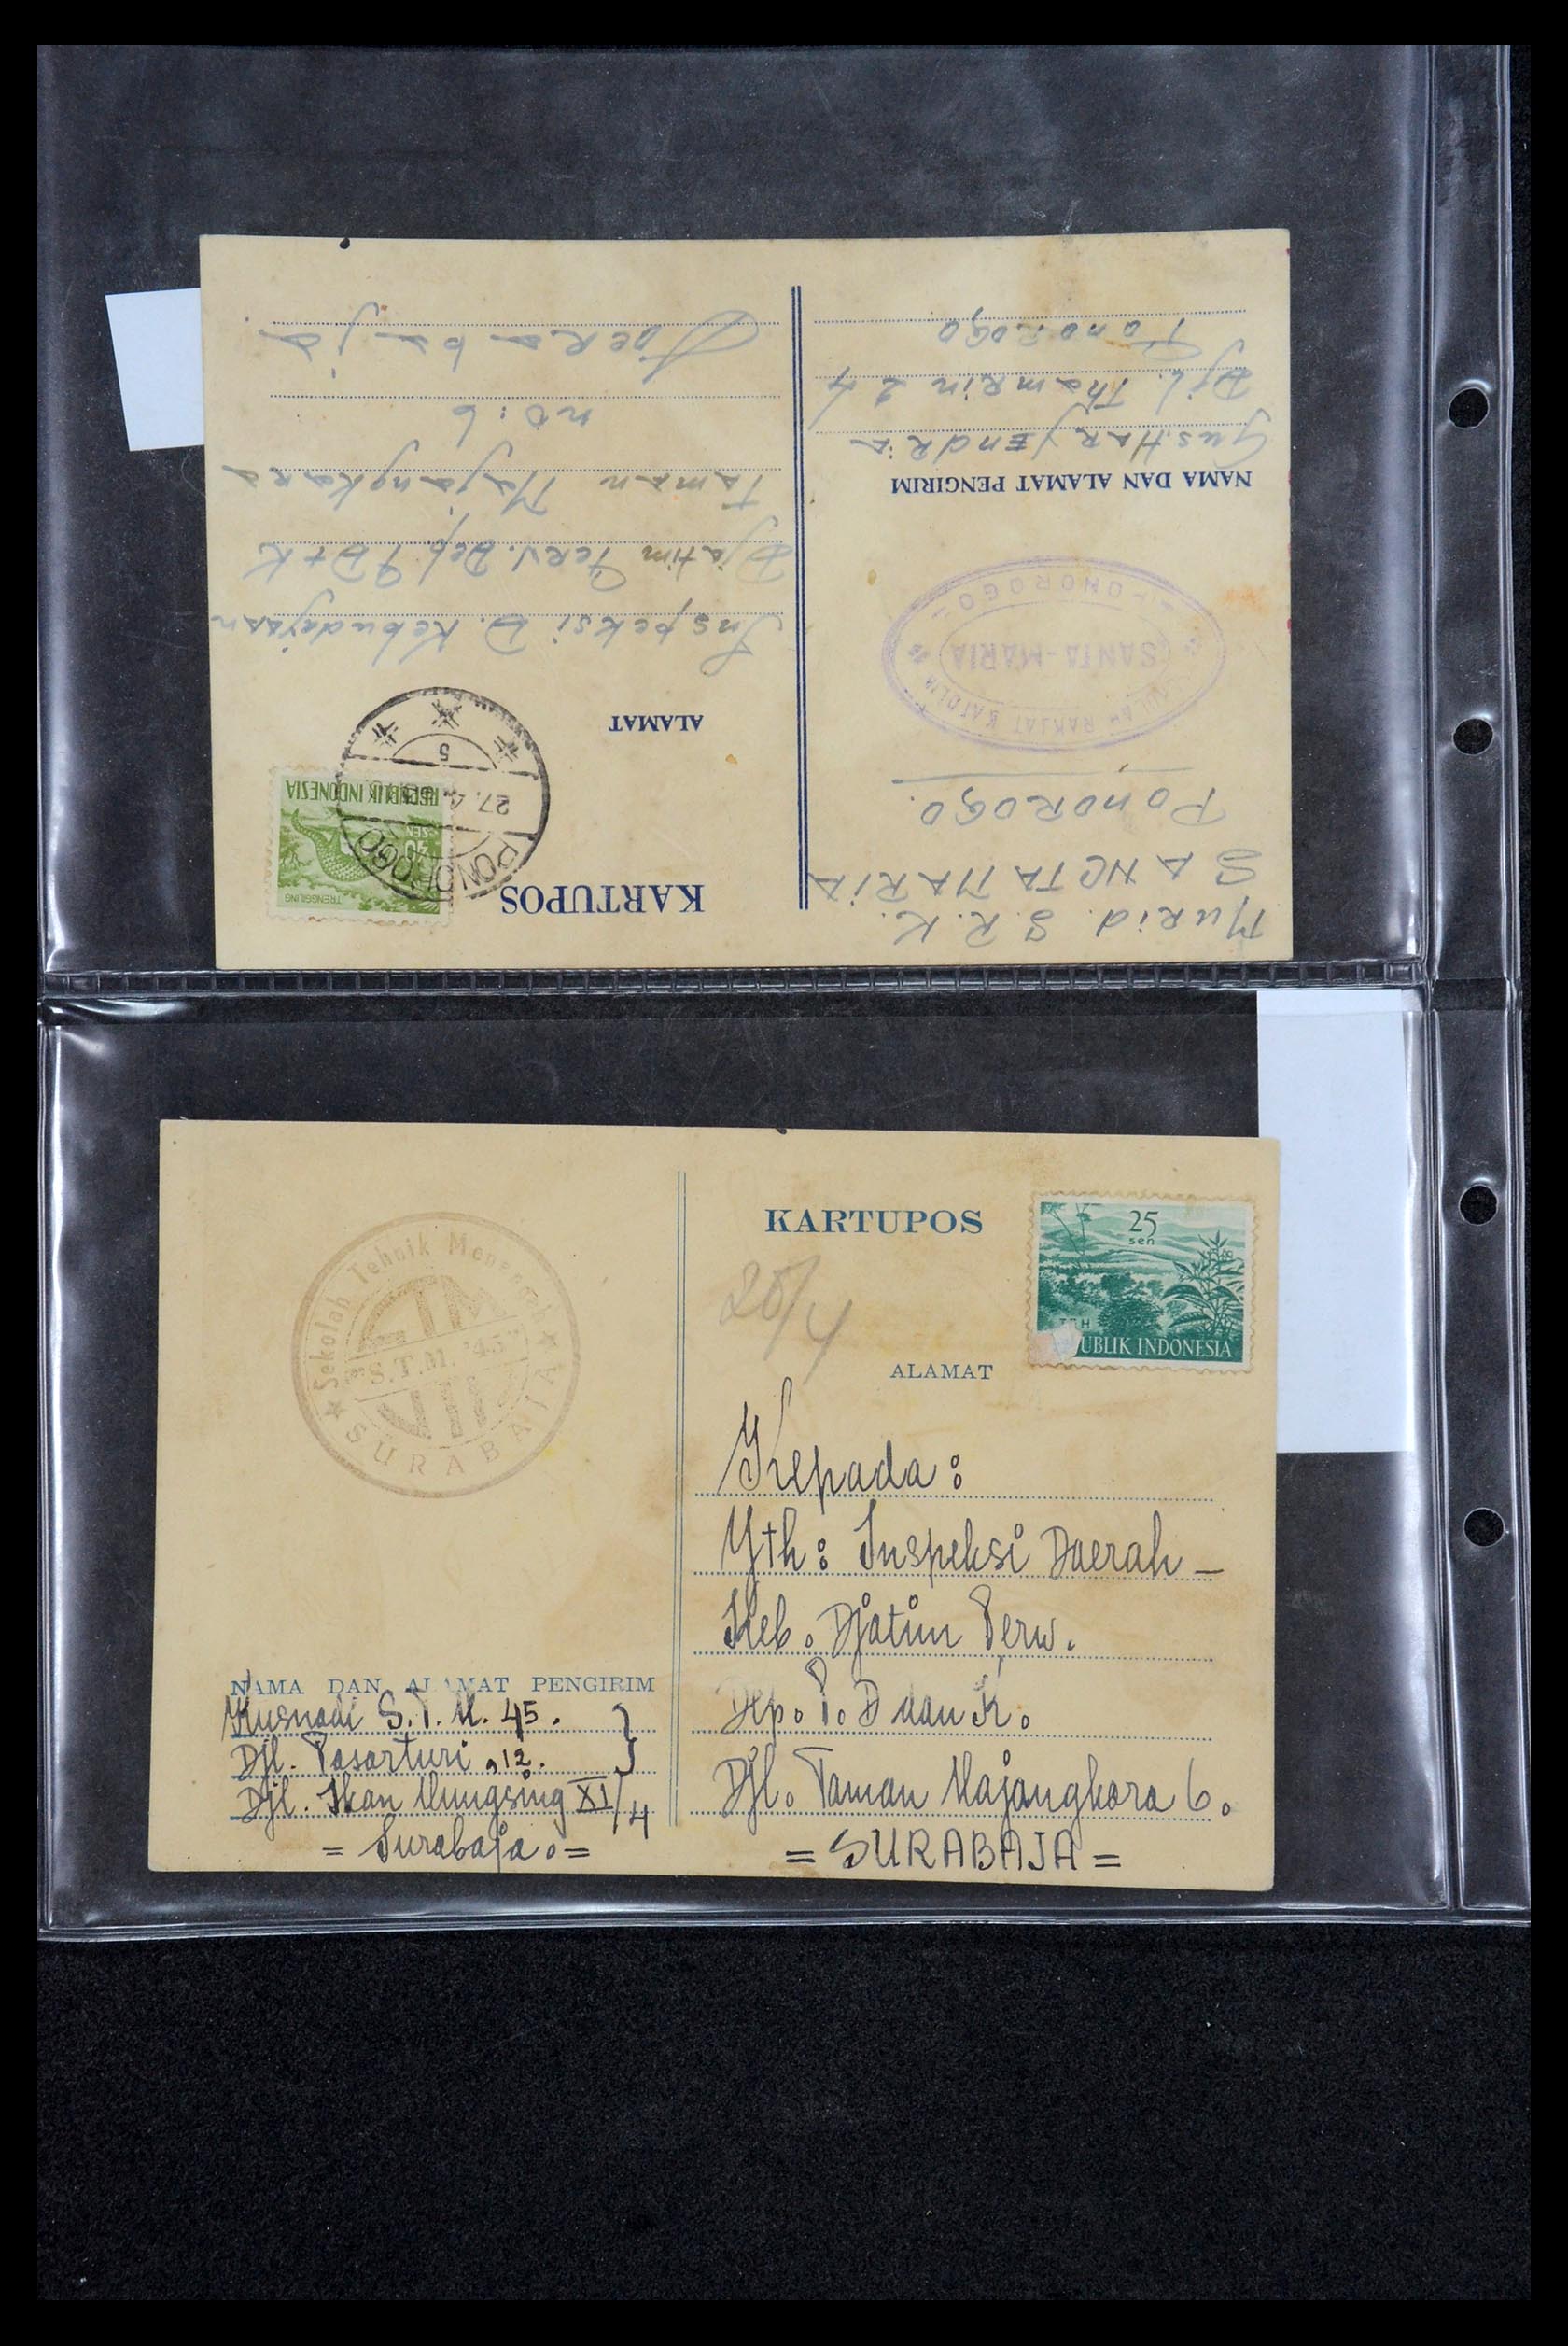 Murid S. R. K.
SANCTA MARIA
PONOROGO.
RAKJAT KATOLIK
SANTA-MARIA
PONOROGO
NAMA DAN ALAMAT PENGIRIM
Djl. Thamrin 24
Ponorogo
KARTUPOS
TRENGGILING
40
SEN
REPUBLIK INDONESIA
PONOROGO
27.4
5
ALAMAT
Inspeksi D. Kebudajaan
Djatim Perw. Dep. P D + K
Taman Majangkara
no: 6
Soerabaja.
Sekolah Tehnik Menengah
S.T.M. "45"
VII
SURABAJA
NAMA DAN ALAMAT PENGIRIM
Kusnadi S.T.M. 45.
Djl. Pasarturi ,12.
Djl. Ikan Mungsing XI/4
= Surabaja. =
KARTUPOS
25
sen
UBLIK INDONESIA
ALAMAT
Kepada:
Yth: Inspeksi Daerah -
Keb. Djatim Perw.
Dep. P. D dan K.
Djl. Taman Majangkara 6.
= SURABAJA =